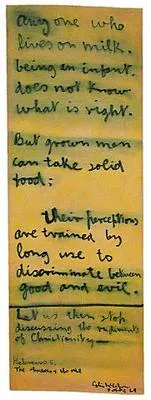 Any one who
lives on milk,
being an infant,
does not know
what is right.
But grown men
can take solid
food;
their perceptions
are trained by
long use to
discriminate between
good and evil.
Let us then stop
discussing the rudiments
of Christianity—
Hebrews 5.